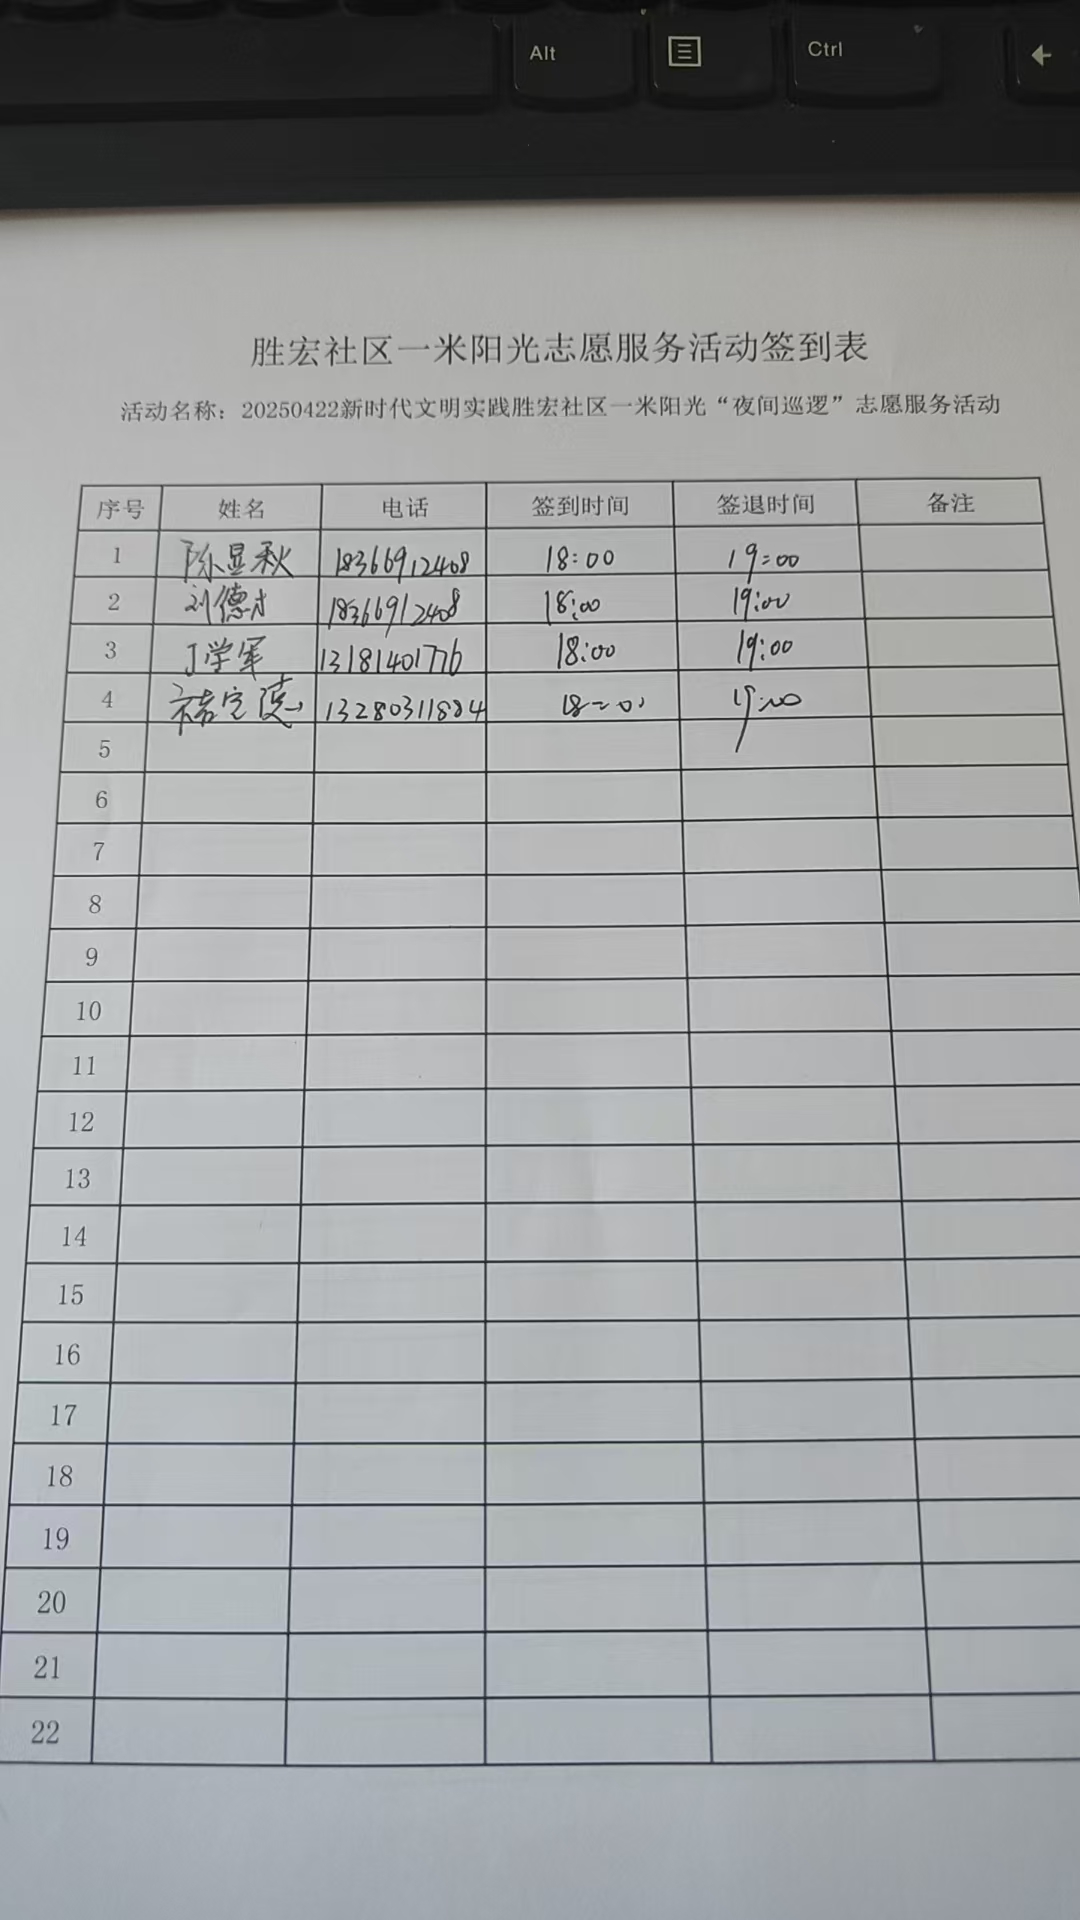 Alt
Ctrl
胜宏社区一米阳光志愿服务活动签到表
活动名称：20250422新时代文明实践胜宏社区一米阳光“夜间巡逻”志愿服务活动
序号 姓名 电话 签到时间 签退时间 备注
1 陈显秋 18366912408 18:00 19:00
2 刘德才 18366912408 18:00 19:00
3 丁学军 13181401776 18:00 19:00
4 13280311884 18:00 19:00
5
6
7
8
9
10
11
12
13
14
15
16
17
18
19
20
21
22